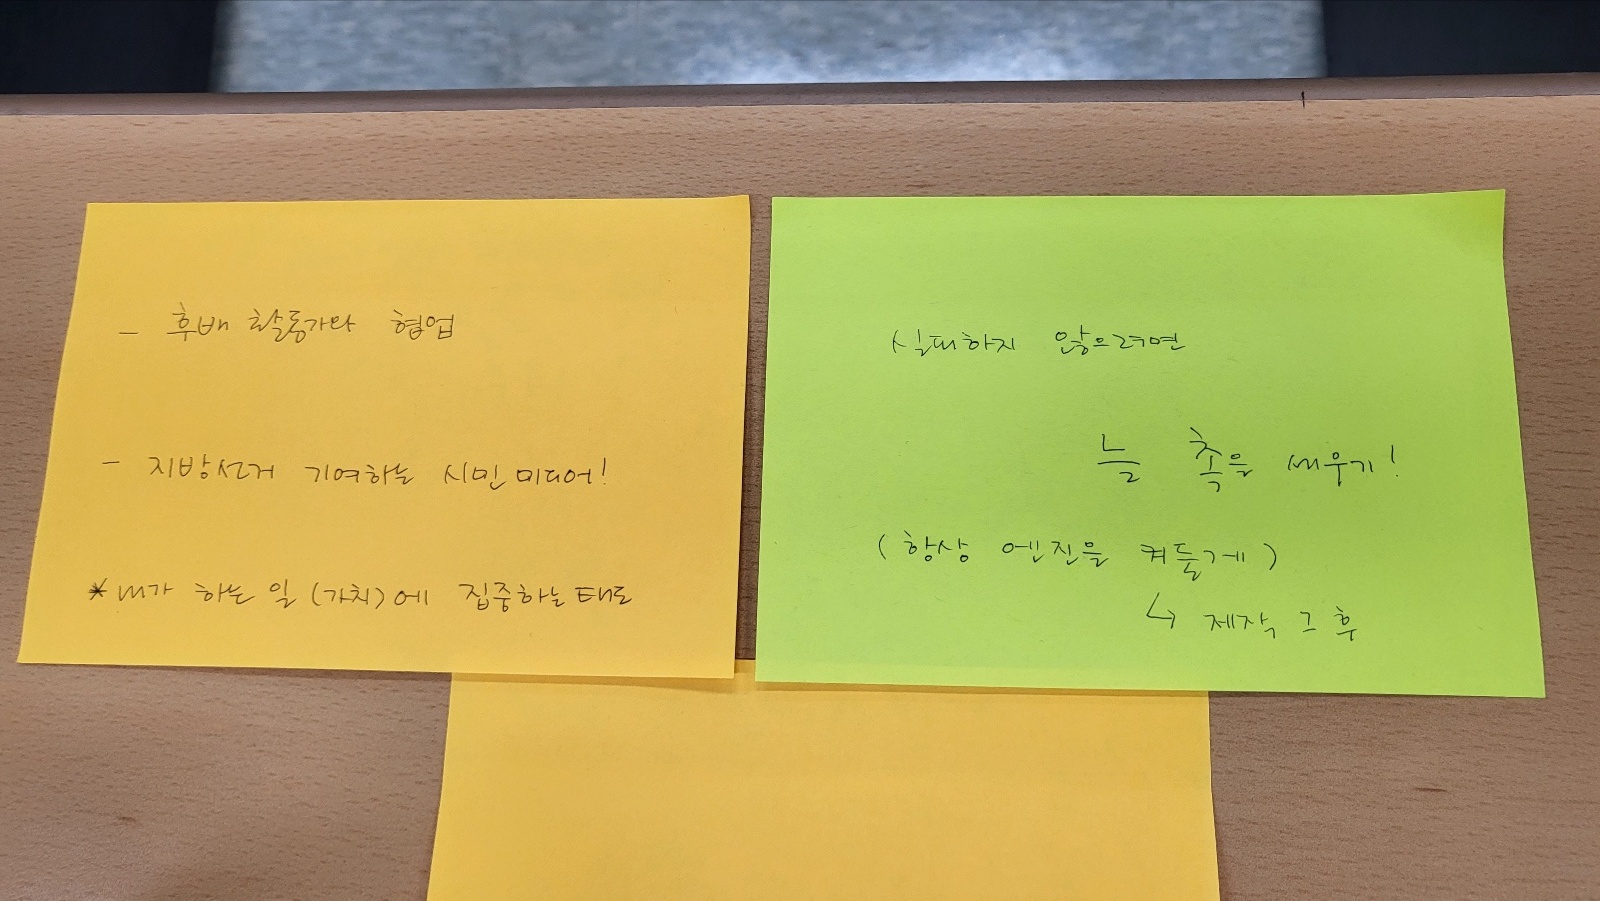 - 후배 활동가와 협업
- 지방선거 기여하는 시민미디어!
* 내가 하는 일 (가치)에 집중하는 태도
실패하지 않으려면
늘 촉을 세우기!
(항상 엔진을 켜둘게)
↳ 제작 그 후